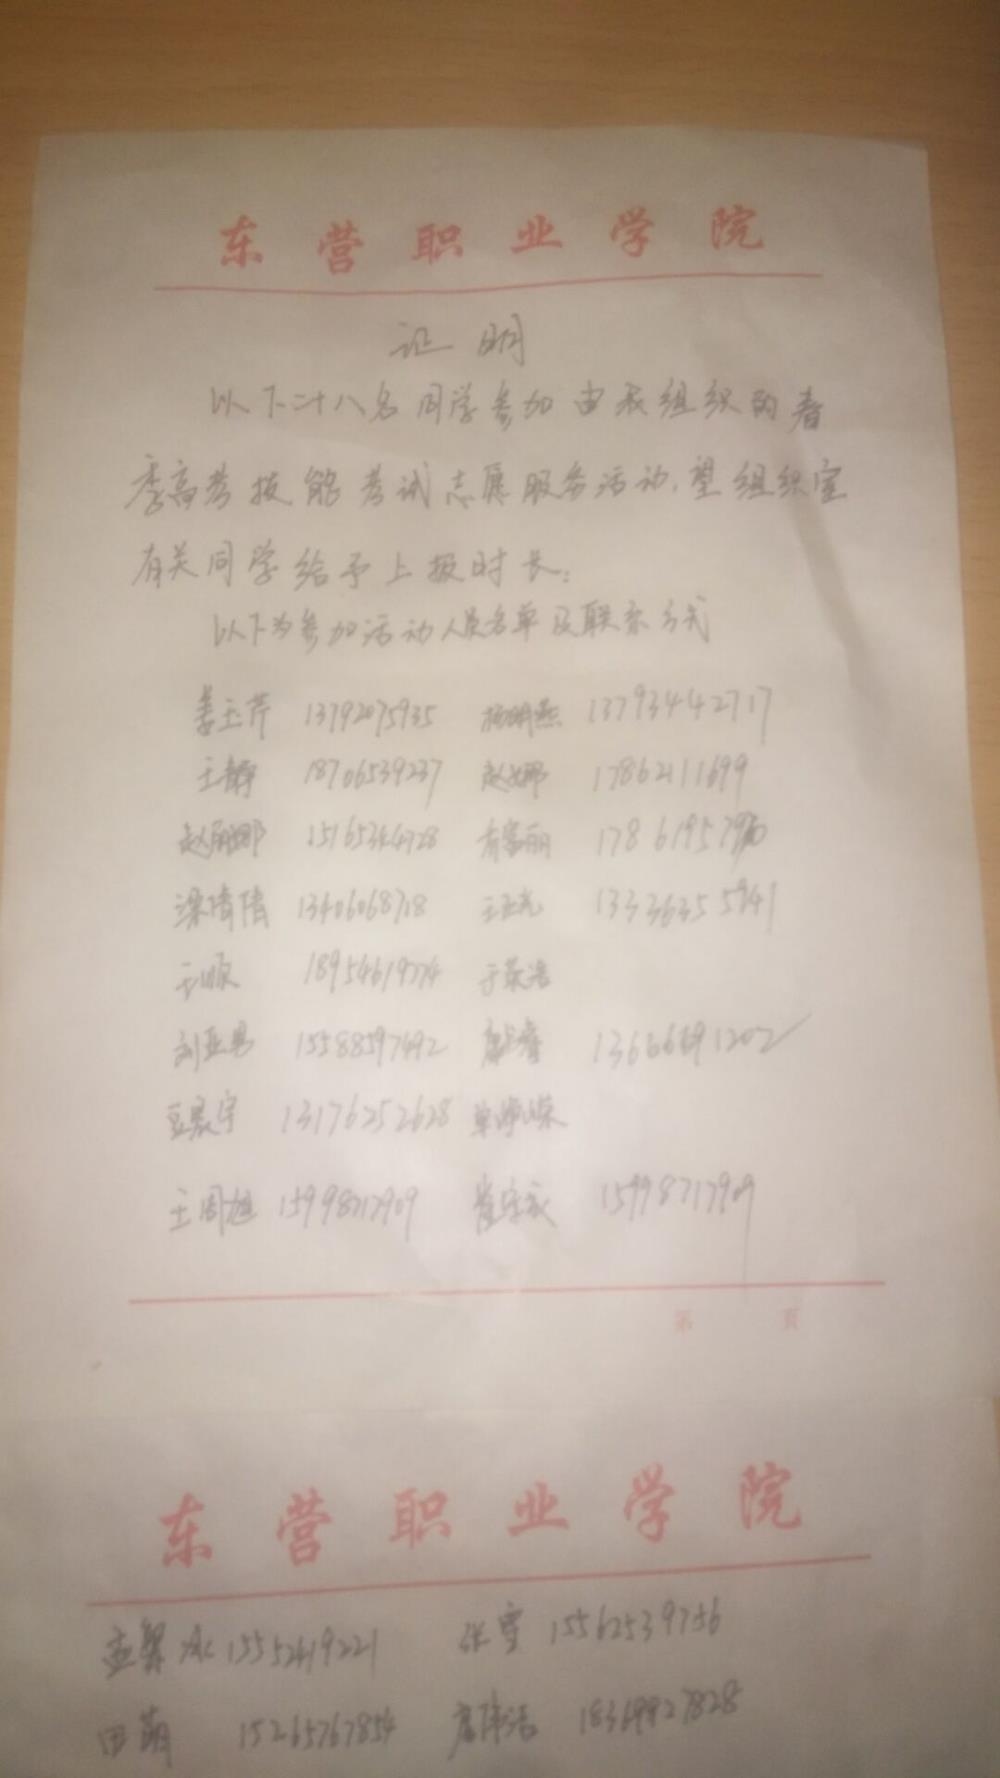 东营职业学院
证明
以下二十八名同学参加由我组织的春
季高考技能考试志愿服务活动,望组织室
有关同学给予上报时长:
以下为参加活动人员名单及联系方式
姜玉芹 13792075935 杨明燕 13793442717
王静 18706539237 赵娜 17862111699
赵丽娜 15165344728
梁倩倩 13406068718 王亚光 13336355941
于顺 18954619774 于荣浩
刘亚男 15588597692 13666691202
豆晨宇 13176252628
王周旭 15998717909 崔宗成 15998717909
第 页
东营职业学院
孟馨冰 张雪 15562539756
田萌 15265767854 18369927828